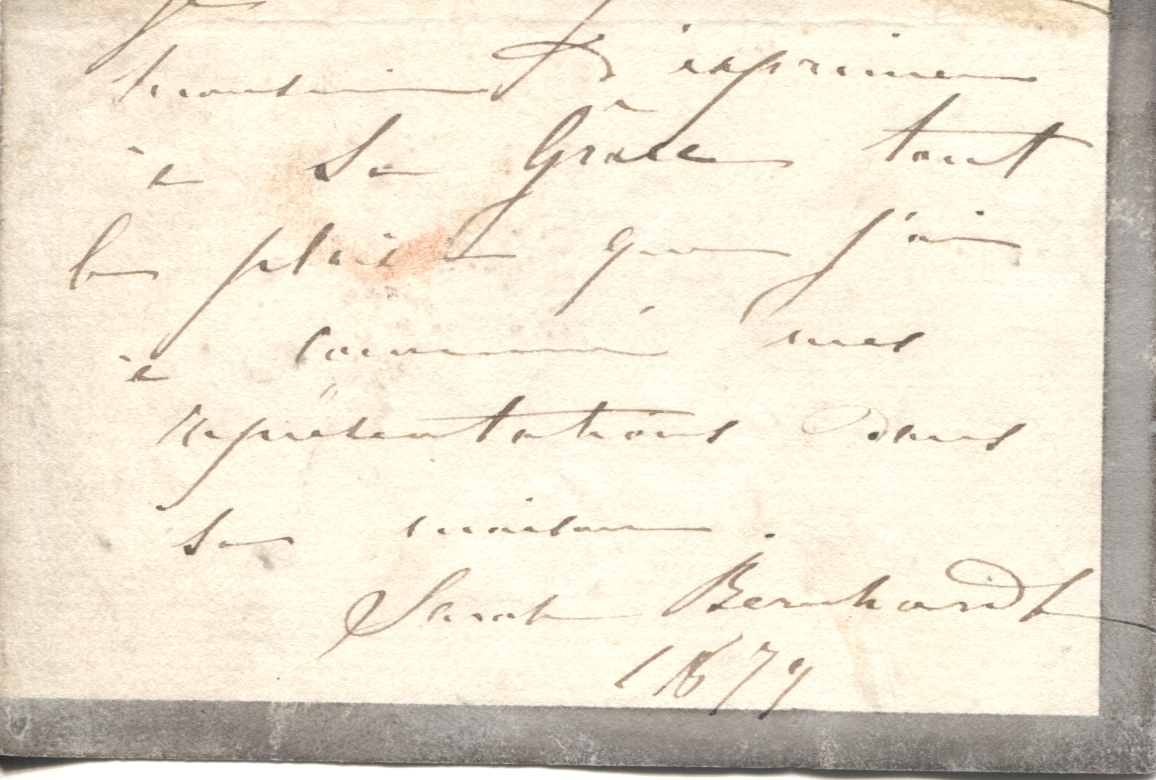 d'exprimer
à Sa Grâce tout
le plaisir que j'ai
à mes
représentations dans
sa maison.
Sarah Bernhardt
1879